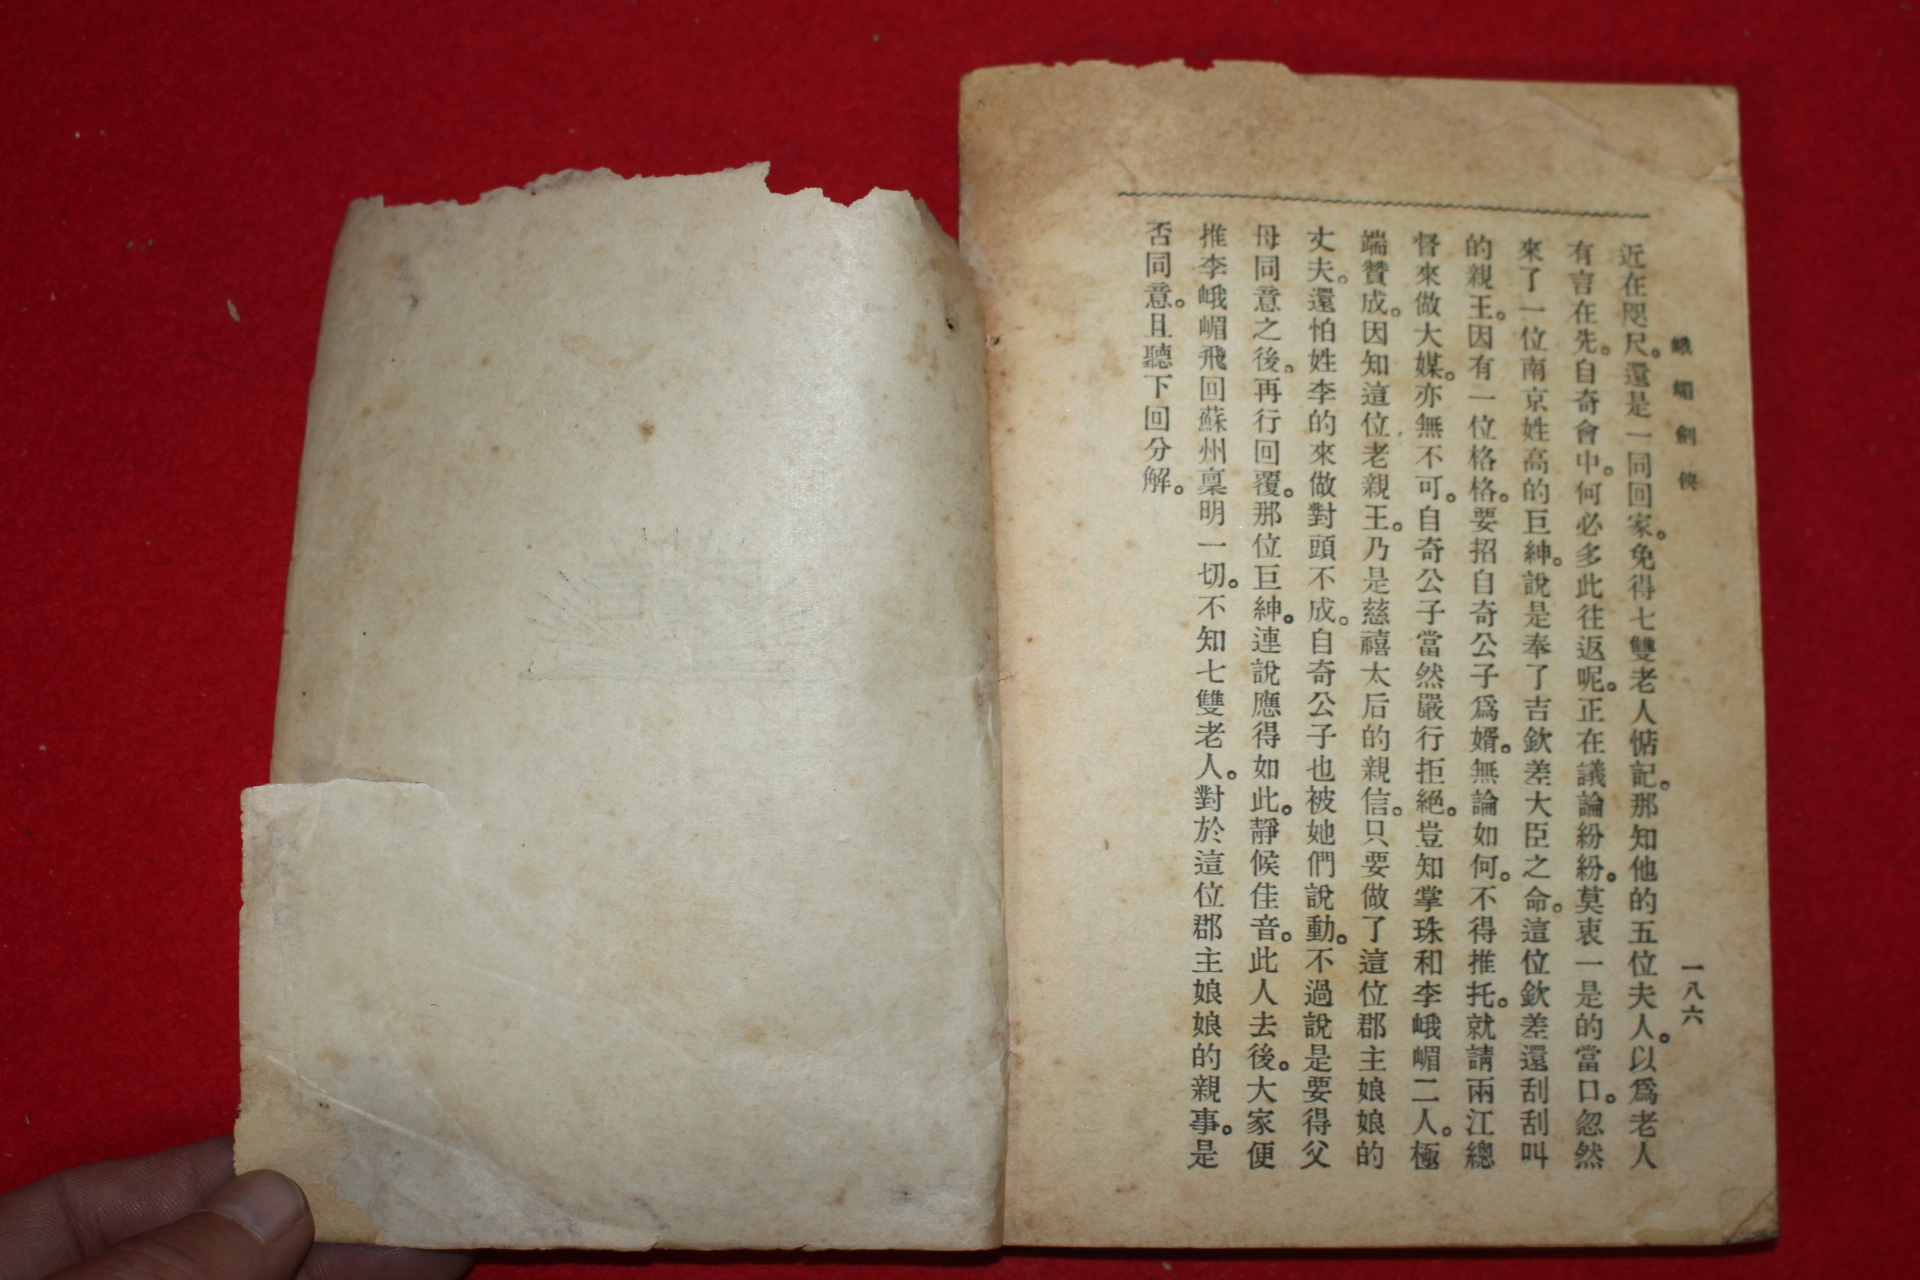 峨嵋劍俠
一八六
近在咫尺。還是一同回家。免得七雙老人惦記。那知他的五位夫人。以爲老人
有言在先。自奇會中。何必多此往返呢。正在議論紛紛。莫衷一是的當口。忽然
來了一位南京姓高的巨紳。說是奉了吉欽差大臣之命。這位欽差還刮刮叫
的親王。因有一位格格。要招自奇公子爲婿。無論如何。不得推托。就請兩江總
督來做大媒。亦無不可。自奇公子當然嚴行拒絕。豈知掌珠和李峨嵋二人。極
端贊成。因知這位老親王。乃是慈禧太后的親信。只要做了這位郡主娘娘的
丈夫。還怕姓李的來做對頭不成。自奇公子也被她們說動。不過說是要得父
母同意之後。再行回覆。那位巨紳。連說應得如此。靜候佳音。此人去後。大家便
推李峨嵋飛回蘇州稟明一切。不知七雙老人。對於這位郡主娘娘的親事。是
否同意。且聽下回分解。